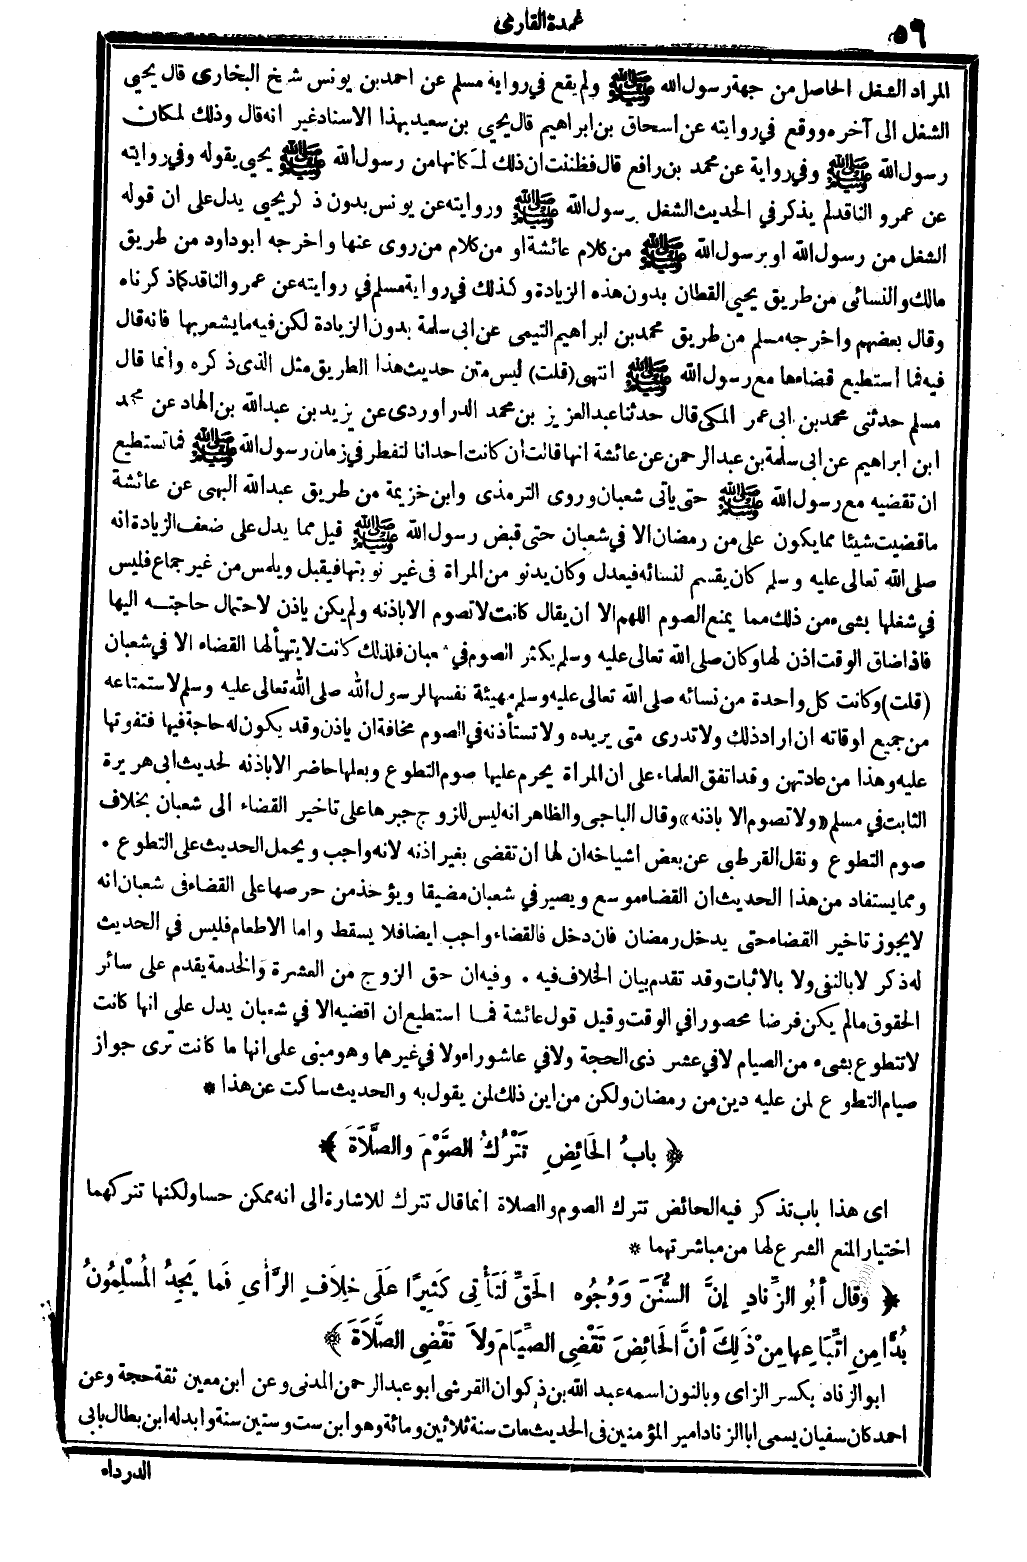 ٥٦
عمدة القارى
المراد الشغل الحاصل من جهة رسول الله ﷺ ولم يقع في رواية مسلم عن احمد بن يونس شيخ البخارى قال يحيى
الشغل الى آخره ووقع في روايته عن اسحاق بن ابراهيم قال يحيى بن سعيد بهذا الاسناد غير انه قال وذلك لمكان
رسول الله ﷺ وفي رواية عن محمد بن رافع قال فظننت ان ذلك لمكانها من رسول الله ﷺ يحيى يقوله وفي روايته
عن عمرو الناقد لم يذكر في الحديث الشغل برسول الله ﷺ وروايته عن يونس بدون ذكر يحيى يدل على ان قوله
الشغل من رسول الله او برسول الله ﷺ من كلام عائشة او من كلام من روى عنها واخرجه ابوداود من طريق
مالك والنسائى من طريق يحيى القطان بدون هذه الزيادة وكذلك في رواية مسلم في روايته عن عمرو الناقد كما ذكرناه
وقال بعضهم واخرجه مسلم من طريق محمد بن ابراهيم التيمى عن ابى سلمة بدون الزيادة لكن فيه ما يشعر بها فانه قال
فيه فما أستطيع قضاءها مع رسول الله ﷺ انتهى (قلت) ليس متن حديث هذا الطريق مثل الذى ذكره وانما قال
مسلم حدثنى محمد بن ابى عمر المكى قال حدثنا عبد العزيز بن محمد الدراوردى عن يزيد بن عبد الله بن الهاد عن محمد
ابن ابراهيم عن ابى سلمة بن عبد الرحمن عن عائشة انها قالت أن كانت احدانا لتفطر في زمان رسول الله ﷺ فما تستطيع
ان تقضيه مع رسول الله ﷺ حتى يأتى شعبان وروى الترمذى وابن خزيمة من طريق عبد الله البهى عن عائشة
ما قضيت شيئا مما يكون على من رمضان الا في شعبان حتى قبض رسول الله ﷺ قيل مما يدل على ضعف الزيادة انه
صلى الله تعالى عليه وسلم كان يقسم لنسائه فيعدل وكان يدنو من المرأة فى غير نوبتها فيقبل ويلمس من غير جماع فليس
في شغلها بشىء من ذلك مما يمنع الصوم اللهم الا ان يقال كانت لا تصوم الا باذنه ولم يكن يأذن لاحتمال حاجته اليها
فاذا ضاق الوقت اذن لها وكان صلى الله تعالى عليه وسلم يكثر الصوم في شعبان فلذلك كانت لا يتهيأ لها القضاء الا في شعبان
(قلت) وكانت كل واحدة من نسائه صلى الله تعالى عليه وسلم مهيئة نفسها لرسول الله صلى الله تعالى عليه وسلم لاستمتاعه
من جميع اوقاته ان اراد ذلك ولا تدرى متى يريده ولا تستأذنه في الصوم مخافة ان يأذن وقد يكون له حاجة فيها فتفوتها
عليه وهذا من عادتهن وقد اتفق العلماء على ان المرأة يحرم عليها صوم التطوع وبعلها حاضر الا باذنه لحديث ابى هريرة
الثابت في مسلم «ولا تصوم الا باذنه» وقال الباجى والظاهر انه ليس للزوج جبرها على تاخير القضاء الى شعبان بخلاف
صوم التطوع ونقل القرطبى عن بعض اشياخه ان لها أن تقضى بغير اذنه لانه واجب ويحمل الحديث على التطوع .
ومما يستفاد من هذا الحديث ان القضاء موسع ويصير في شعبان مضيقا ويؤخذ من حرصها على القضاء فى شعبان انه
لا يجوز تاخير القضاء حتى يدخل رمضان فان دخل فالقضاء واجب ايضا فلا يسقط واما الاطعام فليس في الحديث
له ذكر لا بالنفى ولا بالاثبات وقد تقدم بيان الخلاف فيه . وفيه ان حق الزوج من العشرة والخدمة يقدم على سائر
الحقوق مالم يكن فرضا محصورا في الوقت وقيل قول عائشة فما استطيع ان اقضيه الا في شعبان يدل على انها كانت
لا تتطوع بشىء من الصيام لا في عشر ذى الحجة ولا في عاشوراء ولا في غيرهما وهو مبنى على انها ما كانت ترى جواز
صيام التطوع لمن عليه دين من رمضان ولكن من اين ذلك لمن يقول به والحديث ساكت عن هذا *
﴿ بابُ الحَائِضِ تَتْرُكُ الصَّوْمَ والصَّلَاةَ ﴾
اى هذا باب تذكر فيه الحائض تترك الصوم والصلاة انما قال تترك للاشارة الى انه ممكن حسا ولكنها تتركهما
اختيار المنع الشرع لها من مباشرتهما *
﴿ وقال أبُو الزِّنادِ إنَّ السُّنَنَ وَوُجُوهَ الحَقِّ لَتَأْتِى كَثِيرًا عَلَى خِلَافِ الرَّأْىِ فَما يَجِدُ المُسْلِمُونَ
بُدًّا مِنِ اتِّبَاعِها مِنْ ذَلِكَ أنَّ الحَائِضَ تَقْضِى الصِّيَامَ ولاَ تَقْضِى الصَّلَاةَ ﴾
ابو الزناد بكسر الزاى وبالنون اسمه عبد الله بن ذكوان القرشى ابو عبد الرحمن المدنى وعن ابن معين ثقة حجة وعن
احمد كان سفيان يسمى ابا الزناد امير المؤمنين فى الحديث مات سنة ثلاثين ومائة وهو ابن ست وستين سنة وابدله ابن بطال بابى
الدرداء